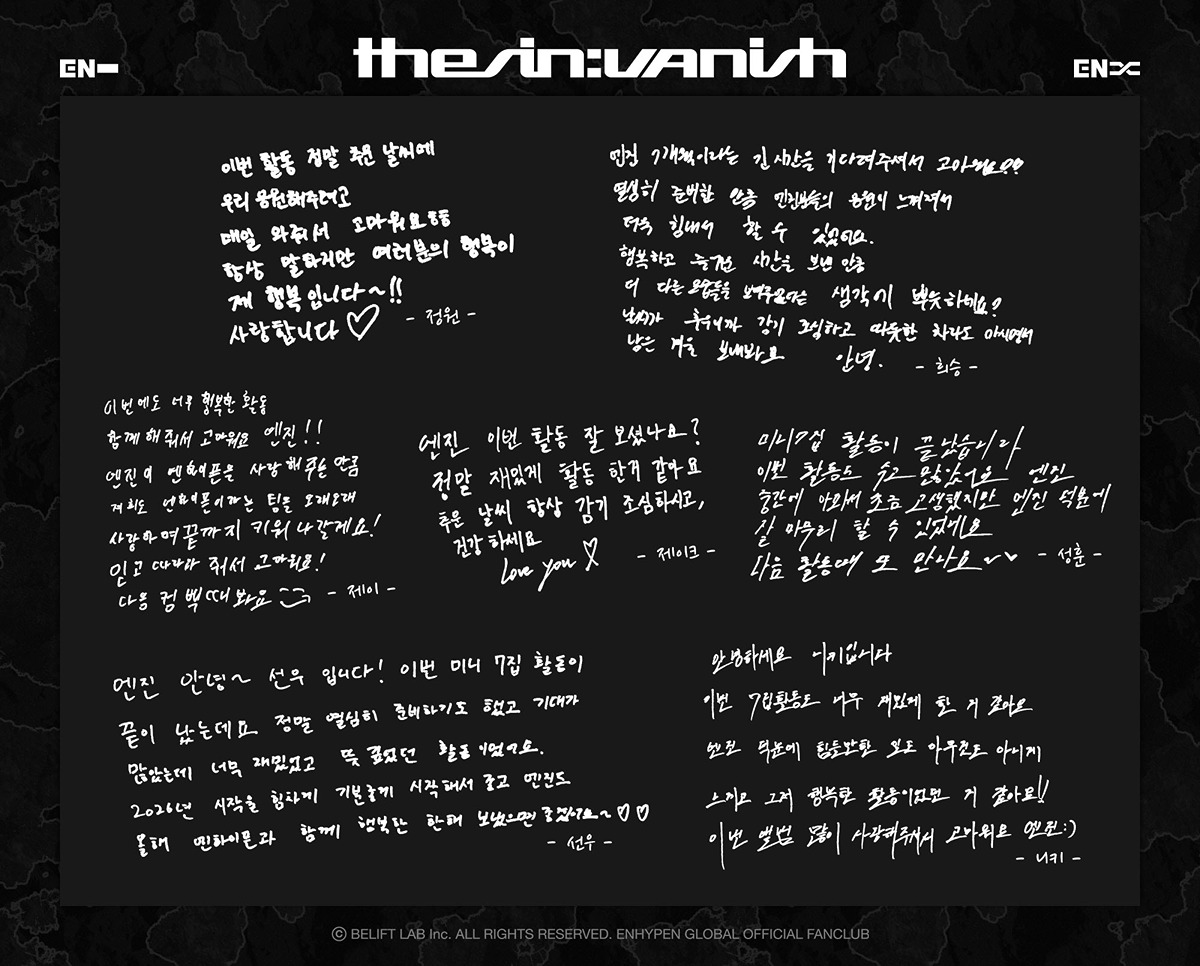 EN-
the sin : vanish
EN
이번 활동 정말 추운 날씨에
우리 응원해주려고
매일 와줘서 고마워요
항상 말하지만 여러분의 행복이
제 행복입니다~!!
사랑합니다♡
- 정원 -
엔진 7개월이라는 긴 시간을 기다려주셔서 고마워요??
열심히 준비한 만큼 엔진분들의 응원이 느껴져서
더욱 힘내서 할 수 있었어요.
행복하고 즐거운 시간을 보낸 만큼
더 다른 모습들을 생각에 뿌듯하네요?
날씨가 추우니까 감기 조심하고 따뜻한 차라도 마시면서
남은 겨울 보내봐요 안녕.
- 희승 -
이번에도 너무 행복한 활동
함께 해 줘서 고마워요 엔진!!
엔진이 엔하이픈을 사랑해 주는 만큼
저희도 엔하이픈이라는 팀을 오래오래
사랑하며 끝까지 키워 나갈게요!
믿고 따라와 줘서 고마워요!
다음 컴백 때 봐요
- 제이 -
엔진 이번 활동 잘 보셨나요?
정말 재밌게 활동 한거 같아요
추운 날씨 항상 감기 조심하시고,
건강하세요
Love you
- 제이크 -
미니7집 활동이 끝났습니다
이번 활동도 수고 많았어요 엔진
중간에 아파서 조금 고생했지만 엔진 덕분에
잘 마무리 할 수 있었네요
다음 활동때 또 만나요~♥
- 성훈 -
엔진 안녕~ 선우 입니다! 이번 미니 7집 활동이
끝이 났는데요 정말 열심히 준비하기도 했고 기대가
많았는데 너무 재밌었고 뜻 깊었던 활동이었어요.
2026년 시작을 힘차게 기분좋게 시작해서 좋고 엔진도
올해 엔하이픈과 함께 행복한 한해 보냈으면 좋겠어요~♡♡
- 선우 -
안녕하세요 니키입니다
이번 7집활동도 너무 재밌게 한 거 같아요
엔진 덕분에 힘들만한 일도 아무것도 아니게
느끼고 그저 행복한 활동이었던 거 같아요!!
이번 앨범 많이 사랑해주셔서 고마워요 엔진:)
- 니키 -
© BELIFT LAB Inc. ALL RIGHTS RESERVED. ENHYPEN GLOBAL OFFICIAL FANCLUB